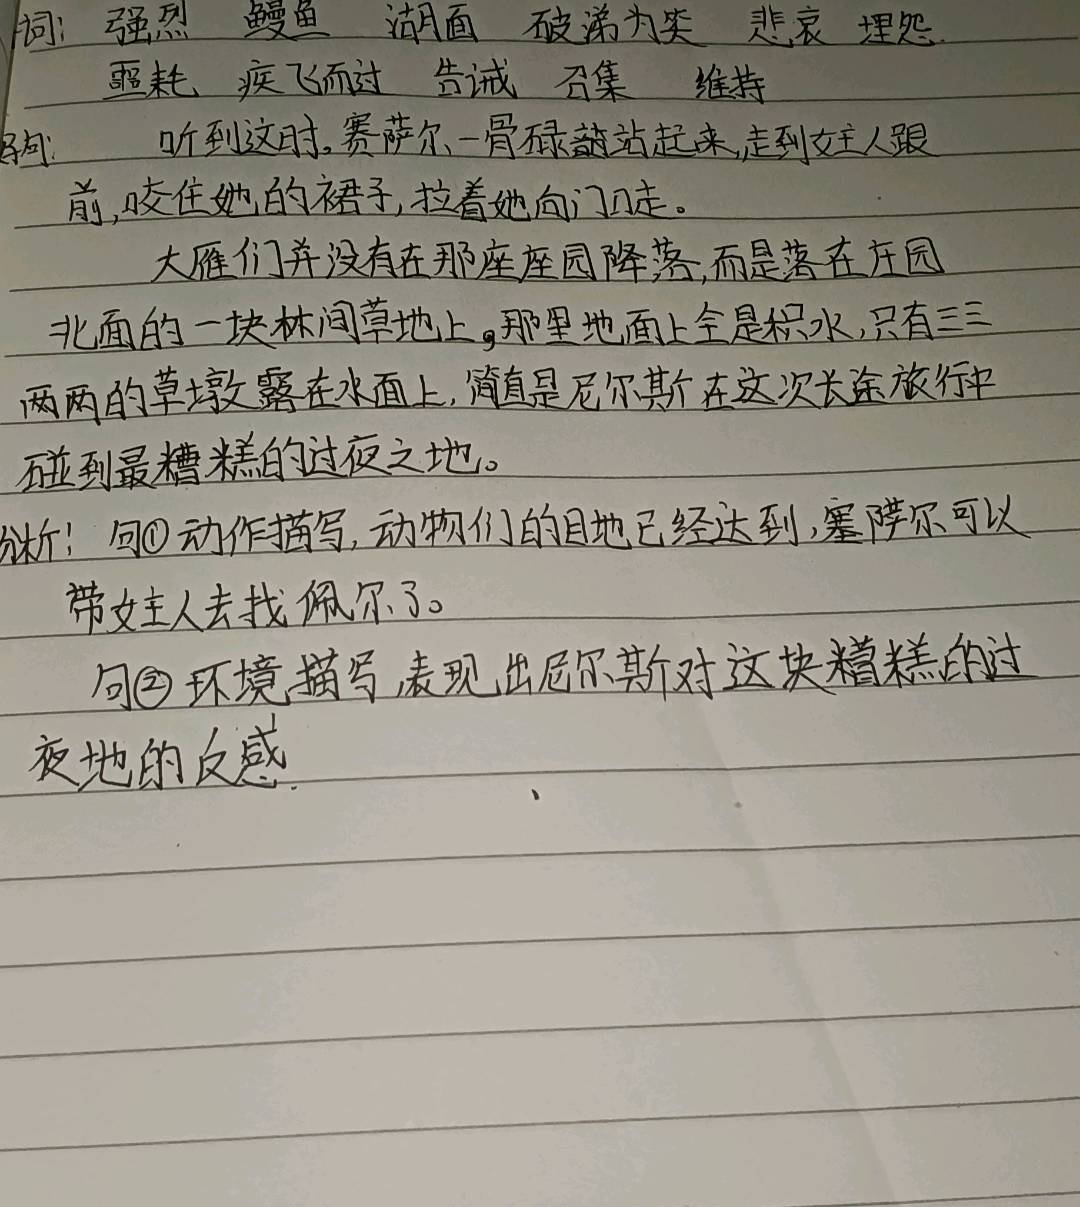 词：强烈 鳗鱼 湖面 破涕为笑 悲哀 埋怨.
噩耗 疾飞而过 告诫 召集 维持
好句： 听到这时。赛萨尔一骨碌站起来,走到女主人跟
前,咬住她的裙子,拉着她向门口走。
大雁们并没有在那座座园降落,而是落在庄园
北面的一块林间草地上。那里地面上全是积水,只有三三
两两的草墩露在水面上,简直是尼尔斯在这次长途旅行中
碰到最糟糕的过夜之地。
分析！句①动作描写,动物们的目地已经达到,塞萨尔可以
带女主人去找佩尔了。
句②环境描写,表现出尼尔斯对这块糟糕的过
夜地的反感.